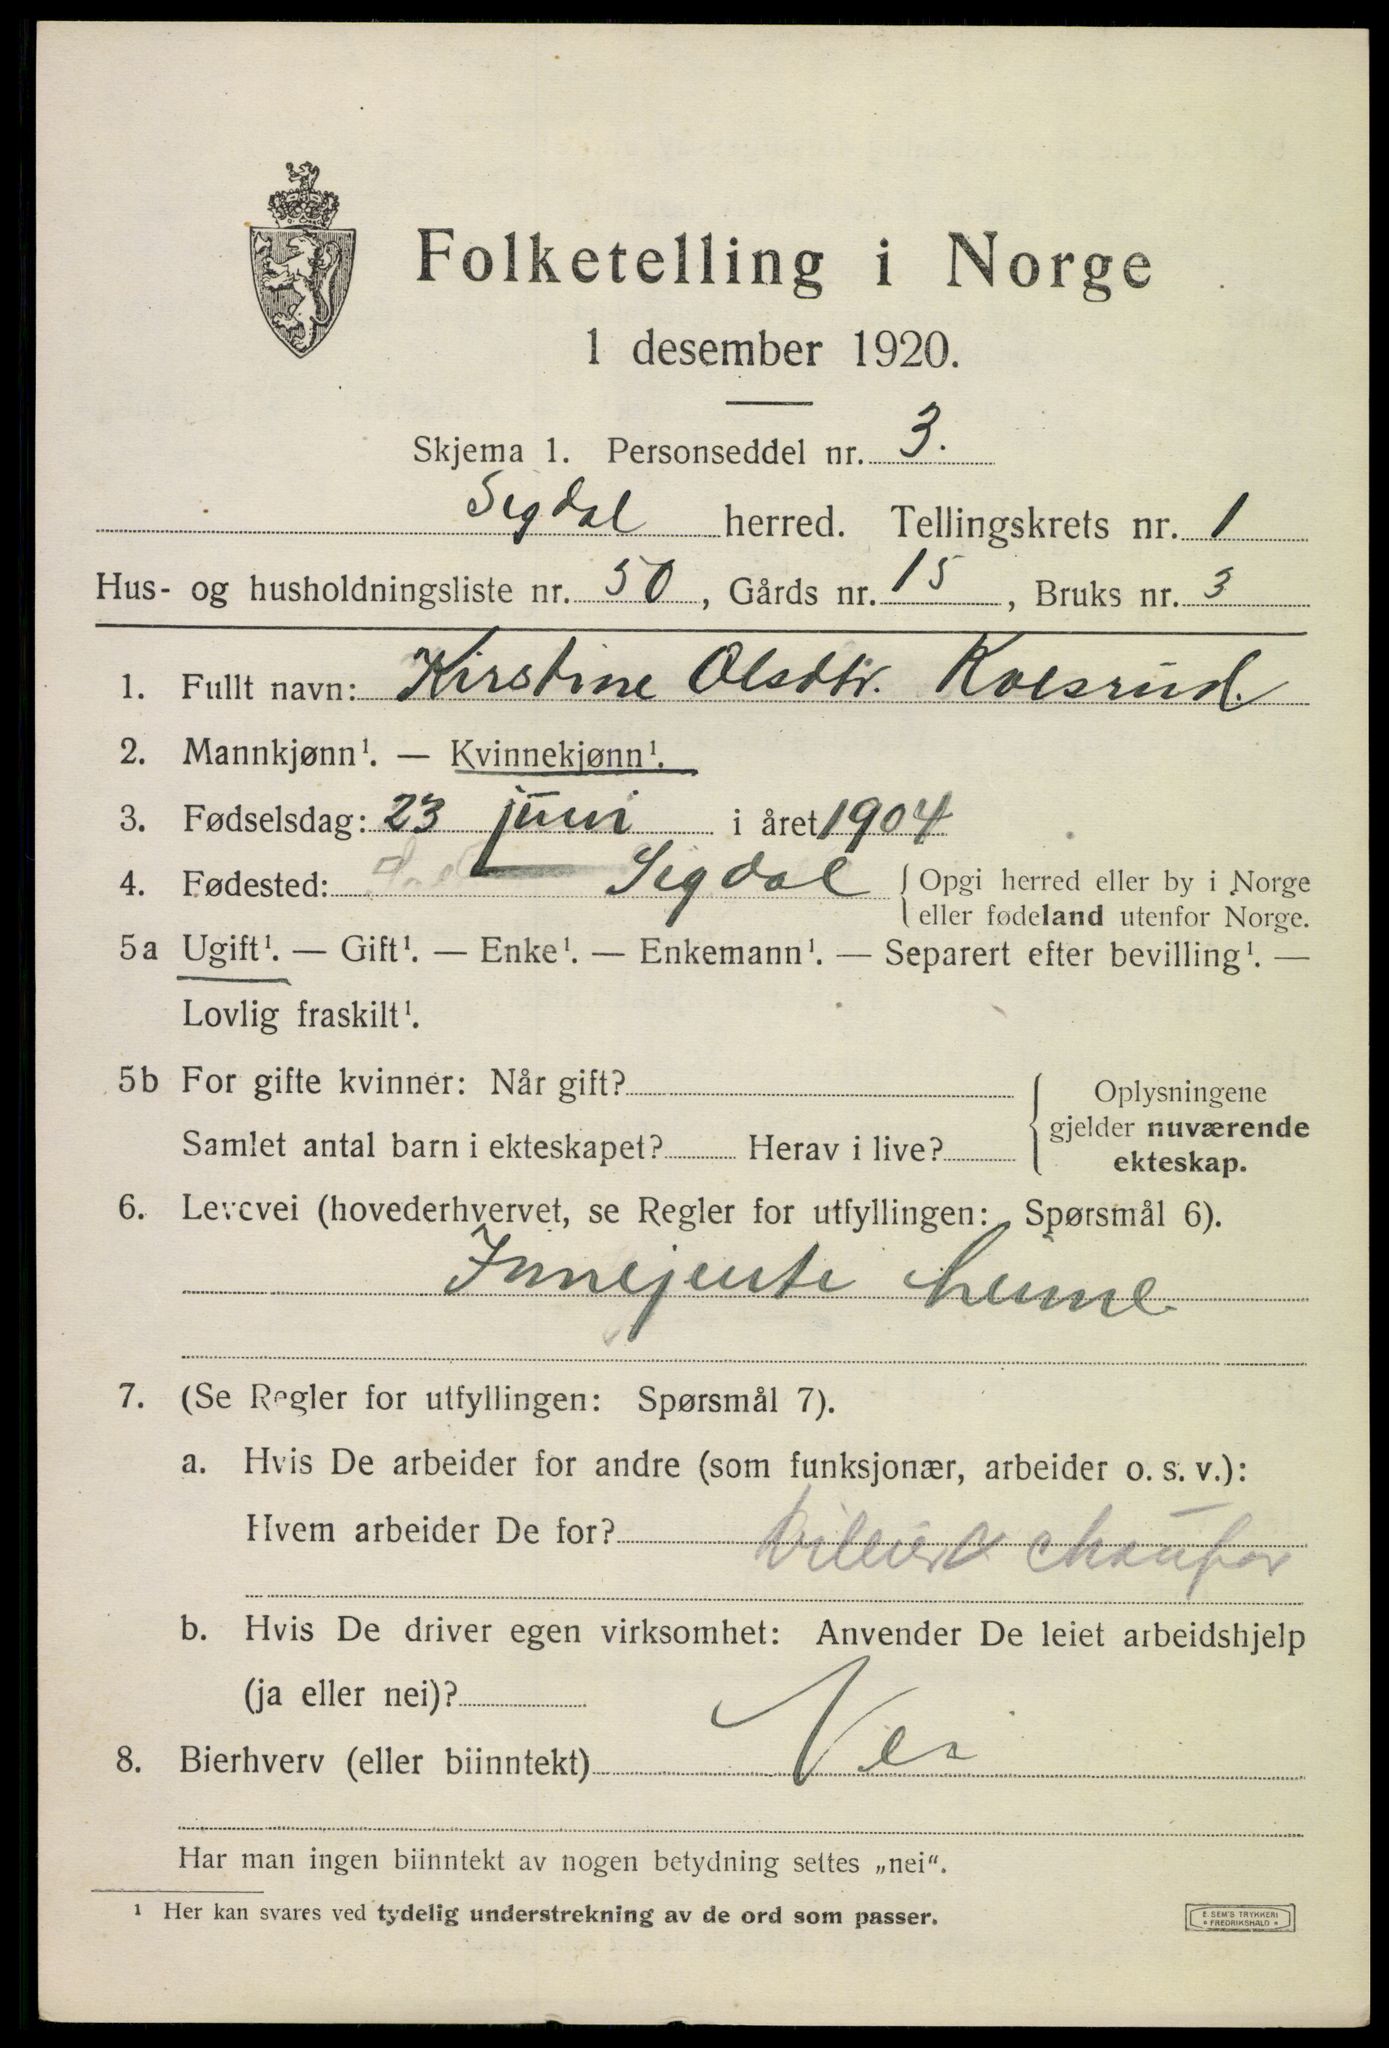 Folketelling i Norge
1 desember 1920.
Skjema 1. Personseddel nr. 3.
Sigdal herred. Tellingskrets nr. 1
Hus- og husholdningsliste nr. 50, Gårds nr. 15, Bruks nr. 3
1. Fullt navn: Kirstine Olsdtr. Kolsrud.
2. Mannkjønn¹. — Kvinnekjønn¹.
3. Fødselsdag: 23 juni i året 1904
4. Fødested: Sigdal { Opgi herred eller by i Norge
eller fødeland utenfor Norge.
5a Ugift¹. — Gift¹. — Enke¹. — Enkemann¹. — Separert efter bevilling¹. —
Lovlig fraskilt¹.
5b For gifte kvinner: Når gift?
Samlet antal barn i ekteskapet? Herav i live?
{ Oplysningene
gjelder nuværende
ekteskap.
6. Levevei (hovederhvervet, se Regler for utfyllingen: Spørsmål 6).
Innejente heime
7. (Se Regler for utfyllingen: Spørsmål 7).
a. Hvis De arbeider for andre (som funksjonær, arbeider o. s. v.):
Hvem arbeider De for?
b. Hvis De driver egen virksomhet: Anvender De leiet arbeidshjelp
(ja eller nei)?
8. Bierhverv (eller biinntekt) Nei
Har man ingen biinntekt av nogen betydning settes „nei".
¹ Her kan svares ved tydelig understrekning av de ord som passer.
E. SEM'S TRYKKERI
* FREDRIKSHALD *